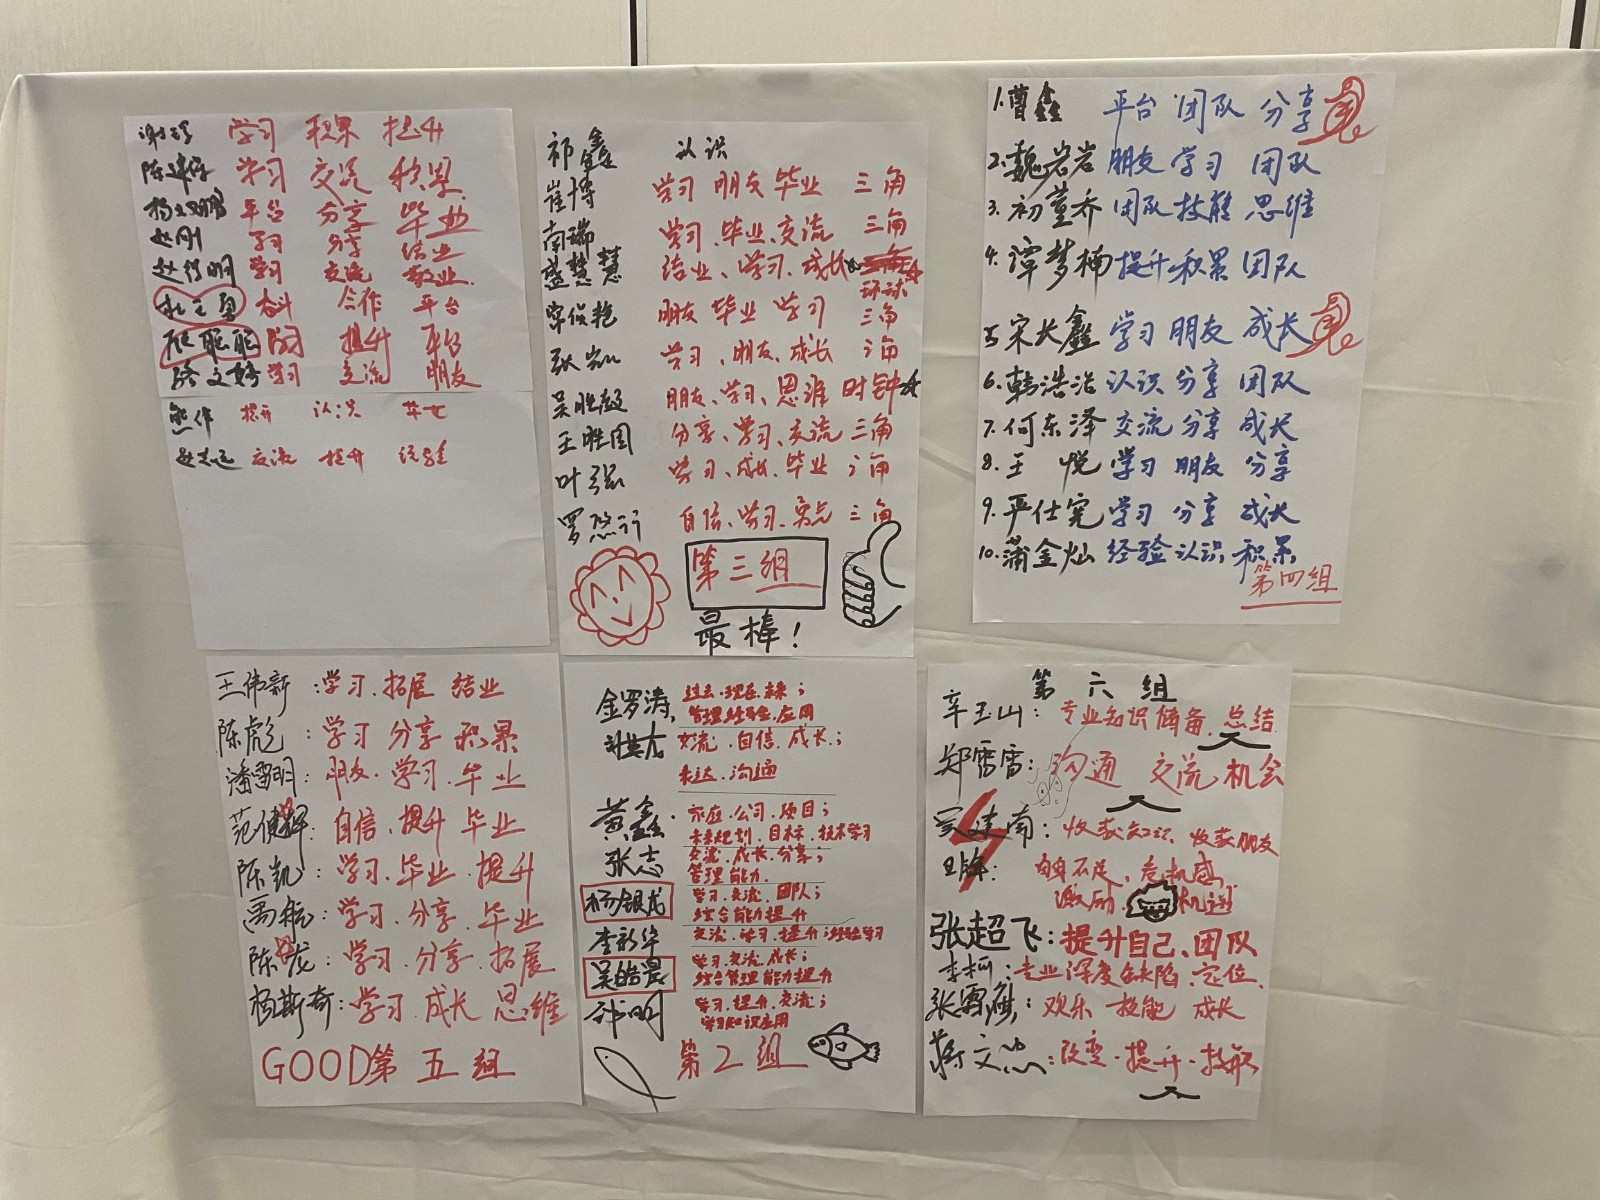 学习 积累 提升
学习 交流 积累
平台 分享 毕业
赵刚 学习 分享 结业
学习 交流 敬业
奋斗 合作 平台
提升
学习 交流 朋友
熊作 提升 认识
交流 提升
祁鑫 认识
崔博 学习 朋友 毕业 三角
南瑞 学习、毕业、交流 三角
盛慧慧 结业、学习、成长 三角
环球
朋友 毕业 学习 三角
张凯 学习、朋友、成长 三角
朋友、学习、思维 时钟
王胜国 分享、学习、交流 三角
叶强 学习、成长、毕业 三角
自信、学习、 三角
第三组
最棒!
1.曹鑫 平台 团队 分享
2.魏岩岩 朋友 学习 团队
3.初董乔 团队 技能 思维
4.谭梦楠 提升 积累 团队
5 宋长鑫 学习 朋友 成长
6.韩浩浩 认识 分享 团队
7.何东泽 交流 分享 成长
8.王 悦 学习 朋友 分享
9.严仕宪 学习 分享 成长
10.蒲金灿 经验 认识 积累
第四组
王伟新:学习.拓展 结业
陈彪:学习 分享 积累
潘雷明:朋友.学习.毕业
自信.提升 毕业
陈凯:学习.毕业.提升
禹航:学习.分享.毕业
陈龙:学习.分享.拓展
杨斯奇:学习.成长 思维
GOOD第五组
金罗涛, 过去.现在.未来;
管理经验.应用
交流.自信.成长;
表达.沟通
黄鑫. 家庭.公司.项目;
未来规划.目标.技术学习
张志 交流.成长.分享;
管理能力.
杨银龙 学习.交流.团队;
综合能力提升
李新华 交流.学习.提升;经验学习
吴皓晨 学习.交流.成长;
综合管理能力提升
学习.提升.交流;
学习知识应用
第2组
第六组
辛玉山:专业知识储备.总结
郑雷雷:沟通 交流 机会
吴建南:收获知识、收获朋友
不足、危机感
激励、机遇
张超飞:提升自己、团队
李柯:专业深度缺陷.定位.
欢乐 技能 成长
蒋文:改变.提升.技能